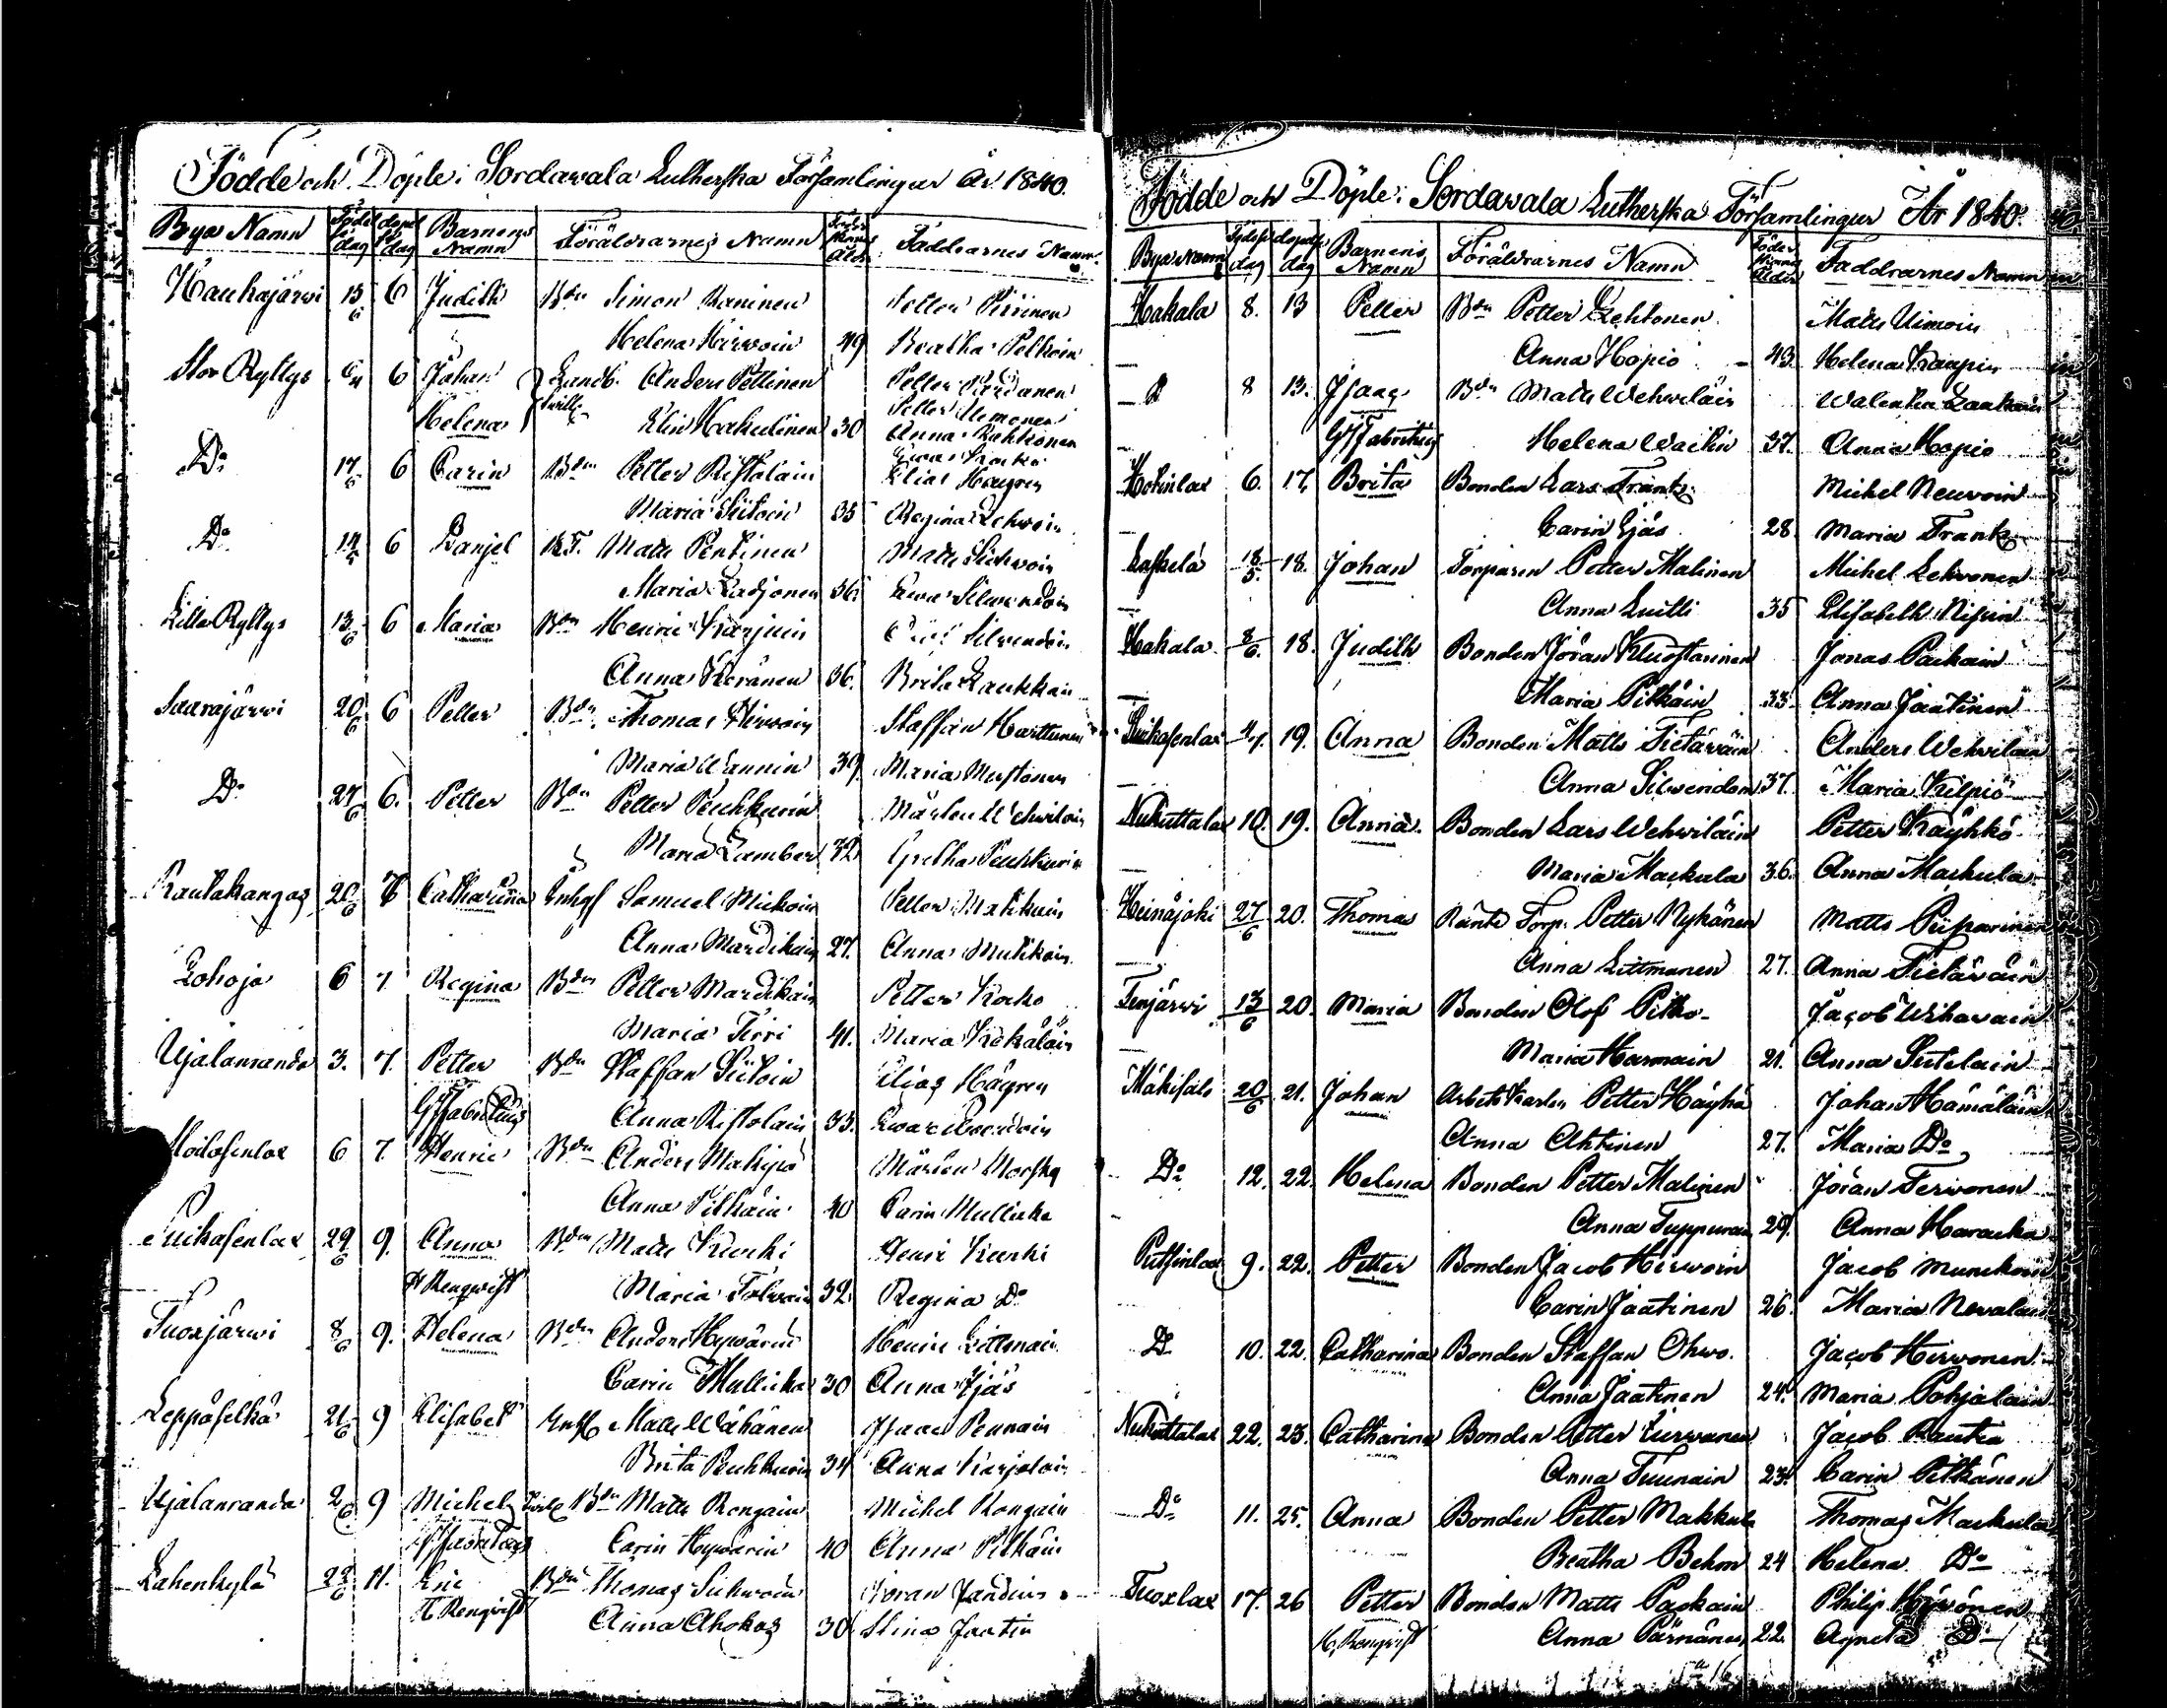 Födde och Döpte i Sordawala Lutherska Församlingen År 1840.
Bya Namn Födelsedag dopdag Barnens Namn Föräldrarnes Namn Ålder Faddrarnes Namn
Haukajärwi 15/6 6 Judith Bdn Simon Raninen Petter Piirinen
Helena Hirwoin 49 Beatha Pelkoin
Stor Ryttys 6 Johan Landb. Anders Pettinen Petter
Helena Elin Hakulinen 30 Petter Simonen
Anna Rahkonen
Do 17/6 6 Carin Bdn Petter Ristolain Elias Häyren
Maria Siitoin 35 Regina Lehwoin
Do 14 6 Danjel Matts Pentinen Matts
Maria Ladjonen 36 Ewa Silwendoin
Lilla Ryttys 13/6 6 Maria Bdn Henric Karjuin Silwendoin
Anna Keränen 36. Brita Laukkain
Saarajärwi 20/6 6 Petter Bdn Thomas Hirwoin Staffan Harttunen
Maria Wannin 39 Maria Mustonen
Do 27/6 6. Petter Bdn Petter Peuhkurin Mårten Wehwiläin
Maria Lamber 32 Gretha Peuhkurin
Rautakangas 26/6 7 Catharina Inhys Samuel Mickoin Petter Mahkuin
Anna Mardikain 27. Anna Mutikain
Lohoja 6 7 Regina Bdn Petter Mardikain Petter Kocko
Maria Tirri 41. Maria Kekäläin
Ujalanranda 3. 7. Petter Bdn Staffan Siitoin Elias Häyren
GJ Fabritius Anna Ristolain 33. Ewa
6 7 Henric Bdn Anders Mårten
Anna Pitkäin 40 Carin Mullikka
29/6 9. Anna Bdn Matts Kurki Henric Kurki
H Renqvist Maria Tolwain 32 Regina Do
Tuoxjärwi 8/6 9. Helena Bdn Anders Hywärin Henric Littmain
Carin Mullikka 30 Anna Ijäs
Leppäselkä 21/6 9 Elisabet Inhys Matts Wähänen Isaac Pennain
Brita Peuhkurin 34 Anna Karjalain
Ujalanranda 2/6 9 Michel Bdn Matts Rongain Michel Rongain
GJ Fabritius Carin Hywärin 40 Anna Pitkäin
Lahenkylä 22/6 11. Eric Bdn Thomas Suhwoin Göran
H Renqvist Anna Ahokas 30 Stina Jaatin
Födde och Döpte i Sordawala Lutherska Församlingen År 1840.
Bya Namn Födelsedag dopdag Barnens Namn Föräldrarnes Namn Ålder Faddrarnes Namn
Hakala 8. 13 Petter Bdn Petter Lehtonen Matts Uimoin
Anna Hopio 43 Helena Kaupin
D 8 13. Isaac Bdn Matts Wehwiläin Walentin Laukain
GJ Fabritius Helena Wackin 37. Anna Hopio
Hotinlax 6. 17. Brita Bonden Lars Frank Michel Neuvoin
Carin Ijäs 28. Maria Frank
Laskelä 18/5. 18. Johan Torparen Petter Malinen Michel Lehvonen
Anna Luitti 35 Elisabeth Nisuin
Hakala 8/6. 18. Judith Bonden Jöran Kluostarinen Jonas Paikain
Maria Pitkäin 33. Anna Jaatinen
4/7. 19. Anna Bonden Matts Tietäväin Anders Wehvilain
Anna Silwendon 37. Maria Kilpiö
Nukuttalax 10. 19. Anna Bonden Lars Wehwiläin Petter Käyhkö
Maria Mackula 36. Anna Mackula
Heinäjoki 27/6 20. Thomas Ränte Torp. Petter Nykänen Matts Piiparinen
Anna Littmanen 27. Anna Tietäväin
Tenjärwi 13/6 20. Maria Bonden Olof Pitko Jacob Wihavain
Maria Harmain 21. Anna Sutelain
Mäkisalo 20/6 21. Johan Arbets Karlen Petter Häyhä Johan Hämäläin
Anna Ahtinen 27. Maria Do
Do 12. 22. Helena Bonden Petter Malinen Jöran Tervonen
Anna Tuppurain 29. Anna Haracka
Putsinlax 9. 22. Petter Bonden Jacob Hirwoin Jacob Munckoin
Carin Jaatinen 26. Maria Nevalain
D 10. 22. Catharina Bonden Staffan Ohwo. Jacob Hirvonen
Anna Jaatinen 24. Maria Pohjalain
Nukuttalax 22. 23. Catharina Bonden Petter Hirwanen Jacob Rautia
Anna Tuunain 23. Carin Pitkänen
Do 11. 25. Anna Bonden Petter Makkula Thomas Mackula
Beatha Behm 24 Helena Do
Tuoxlax 17. 26 Petter Bonden Matts Paskain Philip Hirvonen
H. Renqvist Anna Pärnänen 22. Agneta D